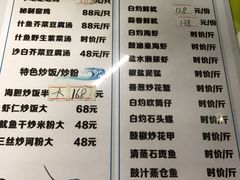 秘制窑鸡 88元/只
什鱼芥菜豆腐汤 48元/
什鱼野生紫菜汤 48元/
沙白芥菜豆腐汤 48元/
特色炒饭/炒粉
海胆炒饭半 木 168
虾仁炒饭大 68元
鱿鱼干炒米粉大 48元
三丝炒河粉大 48元
白灼鲜鱿 138 元/份
蒜蓉鲜鱿 138 元/份
白灼海虾 时价/斤
豉油皇海虾 时价/斤
盐水濑尿虾 时价/斤
椒盐泥猛 时价/斤
姜葱炒花蟹 时价/斤
白灼吹筒仔 时价/斤
白灼石头螺 时价/斤
鼓椒炒花甲 时价/斤
清蒸石斑鱼 时价/斤
鼓汁蒸仓鱼 时价/斤